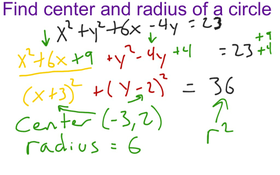 Find center and radius of a circle
x² + y² + 6x - 4y = 23
x² + 6x + 9 + y² - 4y + 4 = 23 + 9 + 4
(x + 3)² + (y - 2)² = 36
center (-3, 2) r²
radius = 6